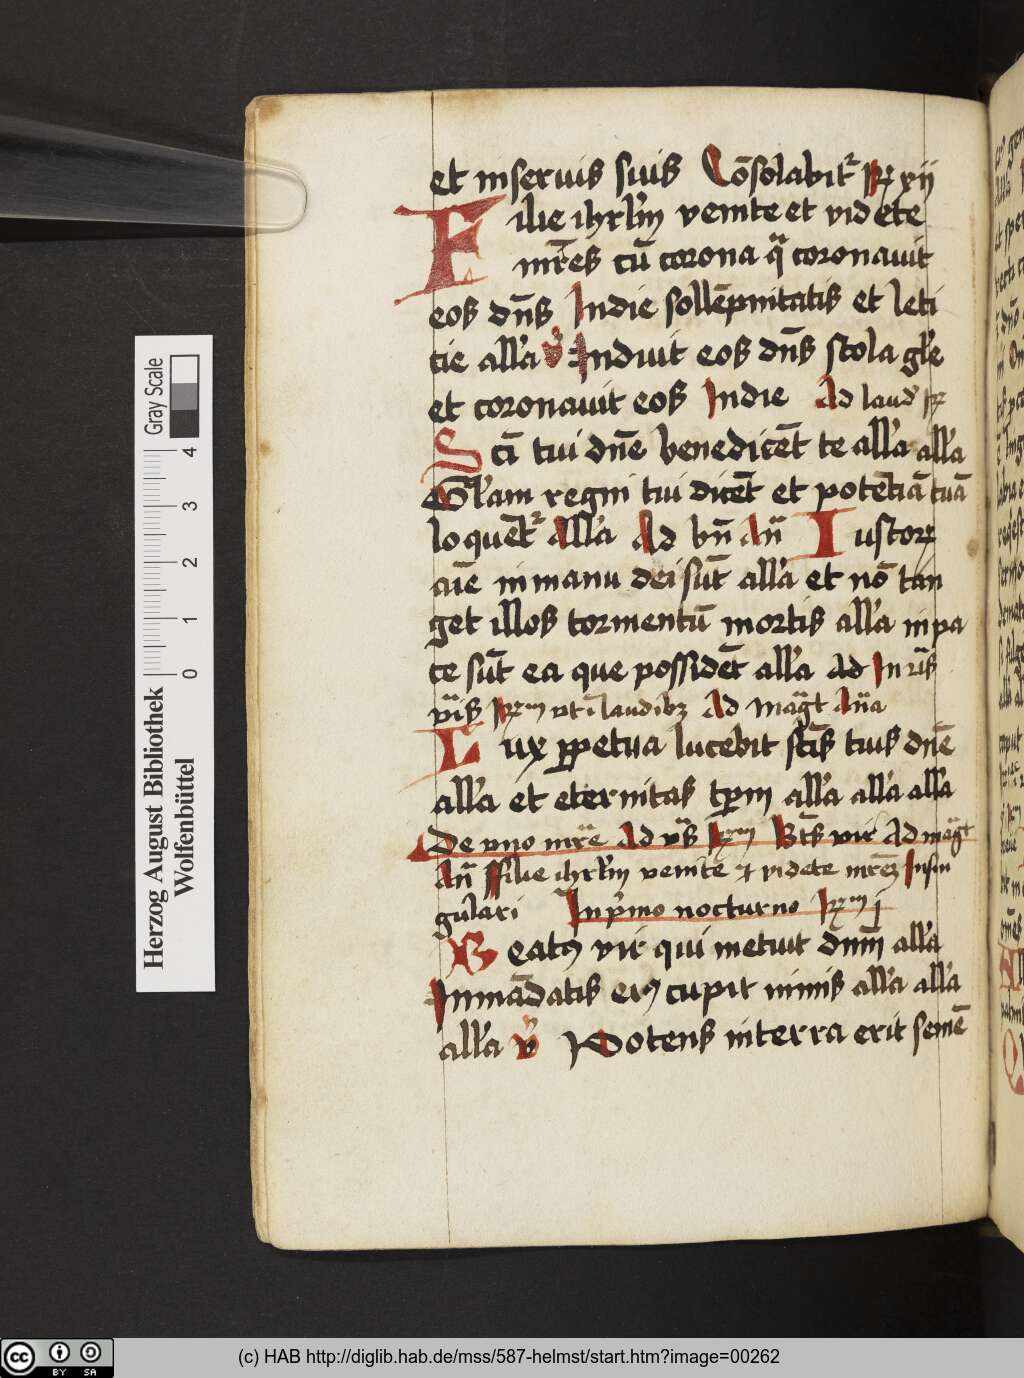 et in seruis suis Cōsolabit᷑ ꝶ xij
Filie ihrl'm venite et videte
mr̄es cū corona q̄ coronauit
eos dn̄s Indie sollēpnitatis et leti
tie all'a v̓ Induit eos dn̄s stola gl'e
et coronauit eos Indie Ad laud' ꝶ
Sc̄i tui dn̄e benedicēt te all'a all'a
Gl'am regni tui dicēt et potētiā tuā
loquēt᷑ all'a Ad bn̄ an̄ Iustoꝝ
aīe in manu dei sūt all'a et nō tan
get illos tormentū mortis all'a in pa
ce sūt
ea que possidēt all'a Ad In
vt ī laudibꝫ Ad mag̅t An̄a
Lux ꝑpetua lucebit sc̄is tuis dn̄e
all'a et eternitas tp̄m all'a all'a all'a
De vno mr̄e Ad vir Ad mag̅t
An̄ Filie ihrl'm venite ⁊ videte mr̄eꝫ In sin
gulari In p'mo nocturno j
Beatꝰ vir qui metuit dnm̄ all'a
In mādatis eiꝰ cupit nimis all'a all'a
all'a v̓ Potens in terra erit semē
Herzog August Bibliothek
Wolfenbüttel
Gray Scale
0 1 2 3 4
cc BY SA
(c) HAB http://diglib.hab.de/mss/587-helmst/start.htm?image=00262